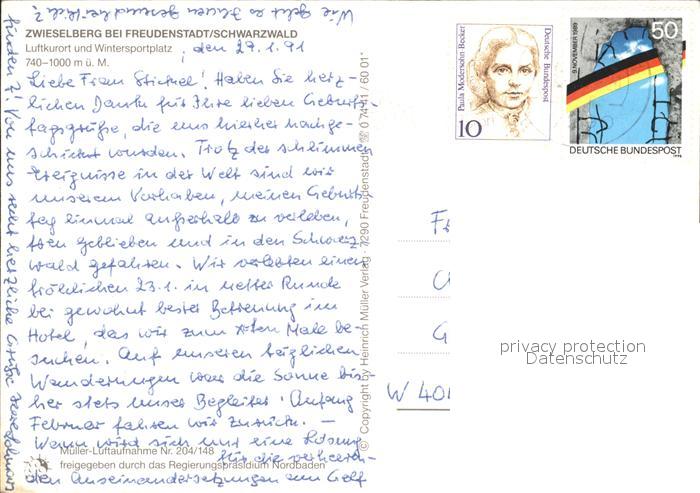 ZWIESELBERG BEI FREUDENSTADT/SCHWARZWALD
Luftkurort und Wintersportplatz
740–1000 m ü. M.
, den 29.1.91
Liebe Frau! Haben Sie herz-
lichen Dank für Ihre lieben Geburts-
tagsgrüße, die uns hierher nachge-
schickt wurden. Trotz der schlimmen
Ereignisse in der Welt sind wir
unserem Vorhaben, meinen Geburts-
tag einmal außerhalb zu verleben,
treu geblieben und in den Schwarz-
wald gefahren. Wir verlebten einen
fröhlichen 23.1. in netter Runde
bei gewohnt bester Betreuung im
Hotel, das wir zum Male be-
suchen. Auf unseren täglichen
Wanderungen war die Sonne bis-
her stets unser Begleiter! Anfang
Februar fahren wir zurück. —
Wann wird sich nur eine Lösung
für die verheeren-
den Auseinandersetzungen am Golf
finden?! Von uns recht herzliche Grüße
Wie geht es Ihnen gesundheitlich?
Müller-Luftaufnahme Nr. 204/148
freigegeben durch das Regierungspräsidium Nordbaden
© Copyright by Heinrich Müller Verlag · 7290 Freudenstadt
Paula Modersohn-Becker
Deutsche Bundespost
10
9. NOVEMBER 1989
50
DEUTSCHE BUNDESPOST
W 40
privacy protection
Datenschutz